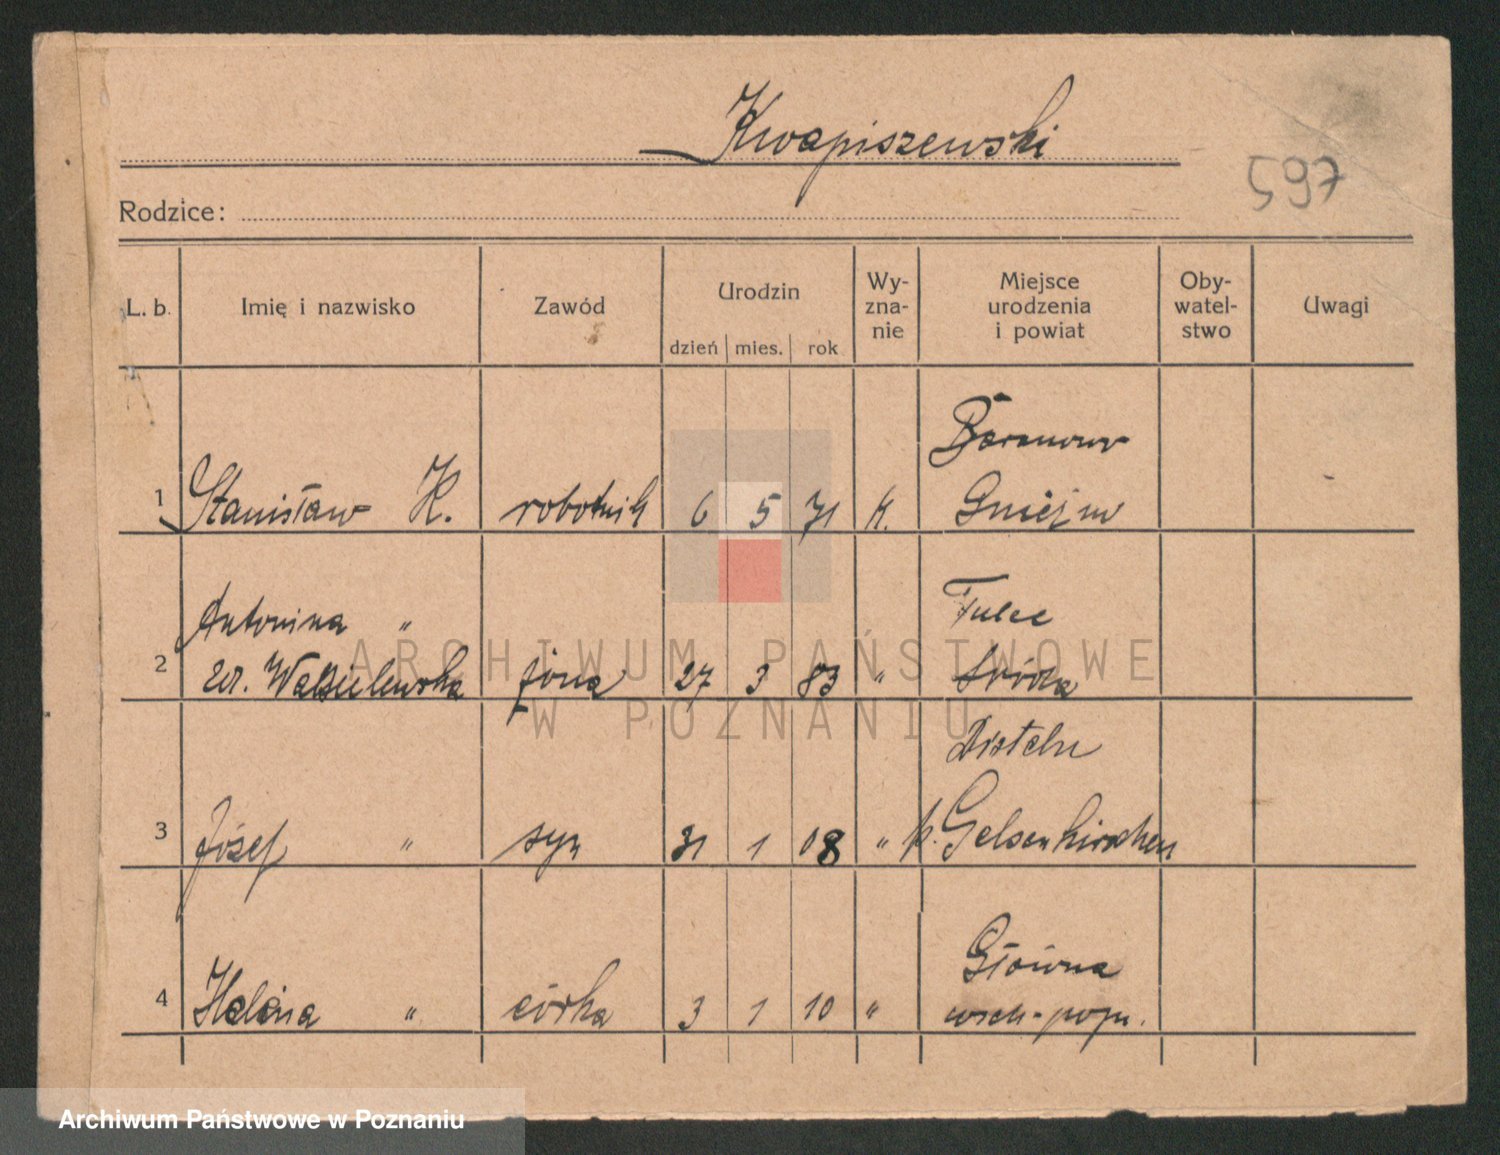 Kwapiszewski
597
Rodzice:
L. b. Imię i nazwisko Zawód Urodzin Wy-zna-nie Miejsce urodzenia i powiat Oby-watel-stwo Uwagi
dzień mies. rok
Baranowo
1 Stanisław K. robotnik 6 5 71 K. Gniezno
Antonina " Tulce
2 żona 27 3 83 " Środa
3 Józef " syn 31 1 08 " p. Gelsenkirschen
Główna
4 Helena " córka 3 1 10 " wsch-pozn.
ARCHIWUM PAŃSTWOWE
W POZNANIU
Archiwum Państwowe w Poznaniu